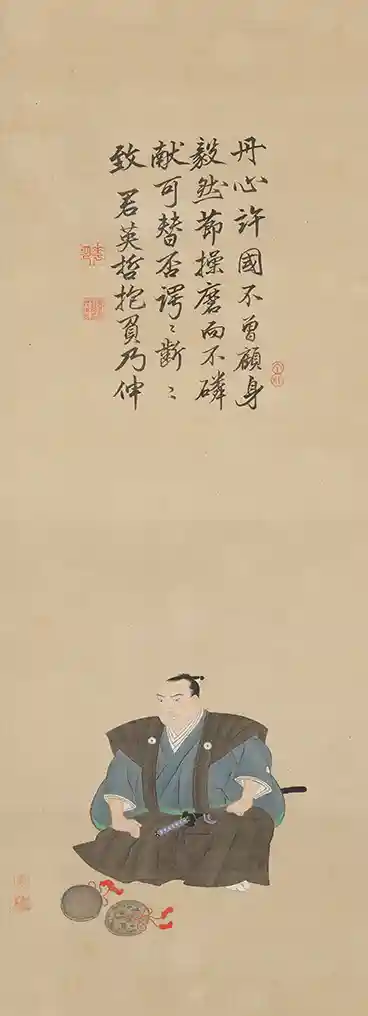 丹心許國不曽顧身
毅然節操磨而不磷
献可替否諤〻斷〻
致君英哲抱負乃伸